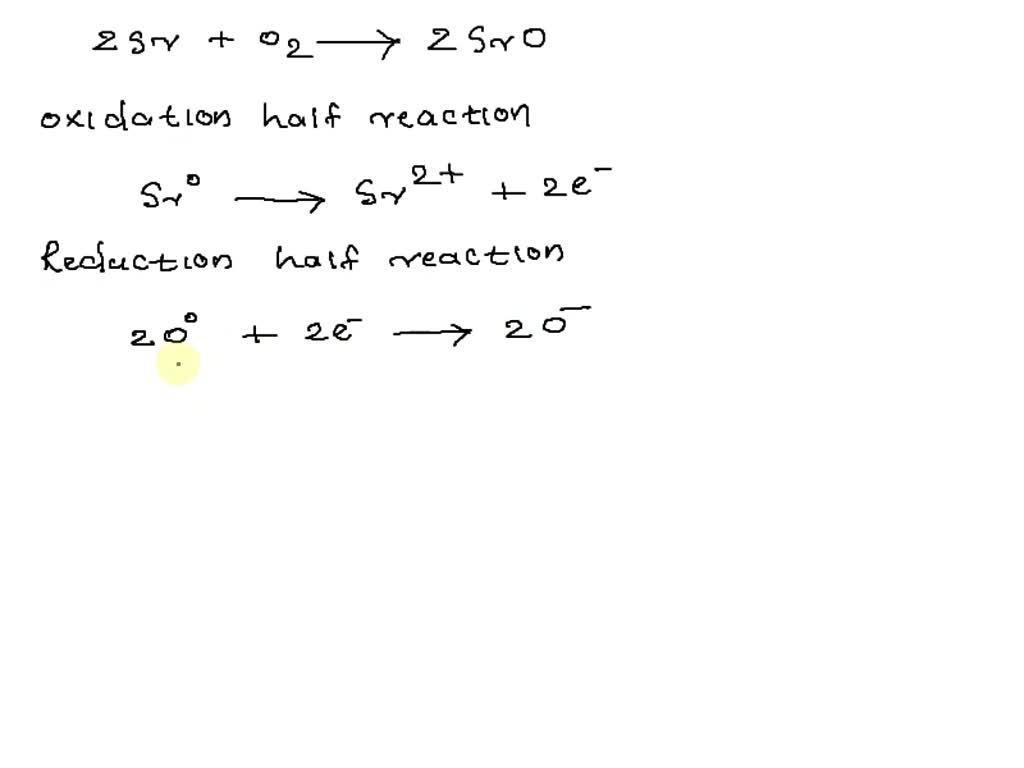 2Sr + O2 → 2SrO
oxidation half reaction
Sr⁰ → Sr²⁺ + 2e⁻
Reduction half reaction
2O⁰ + 2e⁻ → 2O⁻